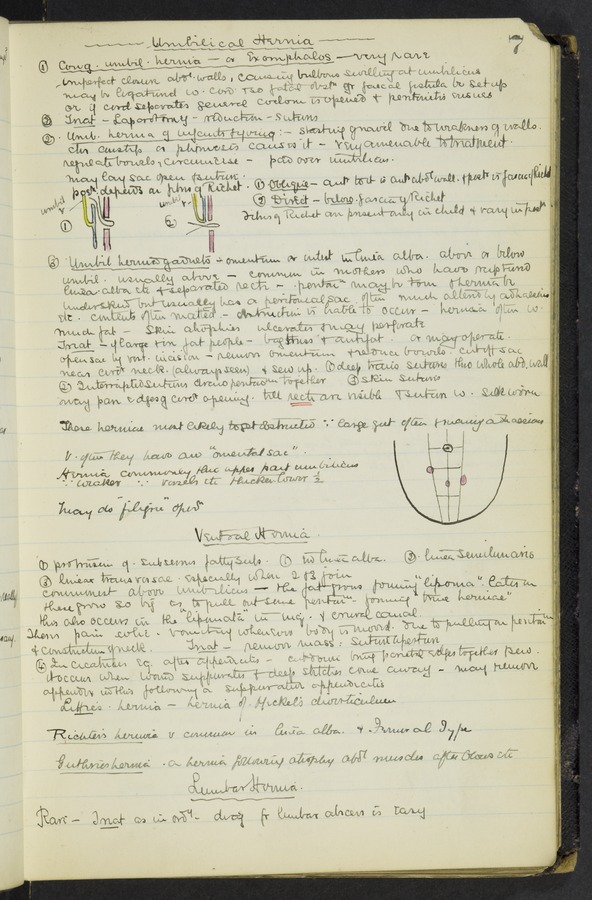 7
Umbilical Hernia
① Cong. umbil. hernia — or Exomphalos — very rare
imperfect closure abdl walls, causing bulbous swelling at umbilicus
may be ligatured w. cord & so fatal obstn or faecal fistula be set up
or if cord separates general coelom is opened & peritonitis ensues
Treat — Laparotomy — reduction — suture
② Umb. hernia of infants & young :- starting gravel due to weakness of walls.
or phimosis causes it — very amenable to treatment.
regulate bowels, circumcise — pad over umbilicus.
may lay sac open & suture.
posn depends on fibres of Richet. ① Oblique — ant to it is ant abdl wall. & post is fascia of Richet
② Direct — below fascia of Richet
fibres of Richet are present only in child & vary in posn.
umbil
①
umbil
②
③ Umbil hernia of adults — omentum or intest in linea alba. above or below
umbil. usually above — common in mothers who have ruptured
linea alba & separated recti — peritm may be torn & hernia be
under skin but usually has a peritoneal sac. often much altered by adhesions
etc. contents often matted — obstruction is liable to occur — hernia often w.
much fat — skin atrophies ulcerates & may perforate
Treat — if large & in fat people — bag truss & antifat. or may operate.
open sac by vert. incision — remove omentum & reduce bowels. cut off sac
near circr neck (always seen) & sew up. ① deep sutures thro whole abd. wall
② Interrupted sutures draw peritm together ③ skin sutures
may pare edges of circr opening. till recti are visible & suture w. silk worm
These herniae most likely to get obstructed ∵ large gut often & many adhesions
V. often they have an "omental sac".
Hernia commonly thro upper part umbilicus
∵ weaker ∵ vessels etc thicken lower ½
may do "filigree" opern
Ventral Hernia
① protrusion of subserous fatty subs. ① in linea alba. ② linea semilunaris
③ linea transversae. especially when 2 & 3 join
commonest above umbilicus — the fat grows forming "lipoma". later on
these grow so big as to pull out some peritm forming "true herniae"
this also occurs in the "lipomata" in ing. & crural canal.
There's pain colic. vomiting whenever body is moved. due to pulling on peritm
& constriction of neck. Treat — remove mass: suture aperture
④ In cicatrices eg. after appendicitis — cut down bring parietal edges together & sew.
It occurs when wound suppurates & deep stitches come away — may remove
appendix in this following a suppurative appendicitis
Littre's hernia — hernia of Meckel's diverticulum
Richter's hernia v common in linea alba. & Femoral Type
Guthries hernia. a hernia following atrophy abdl muscles after blows etc
Lumbar Hernia.
Rare — Treat as in ordy — diag fr lumbar abscess is easy